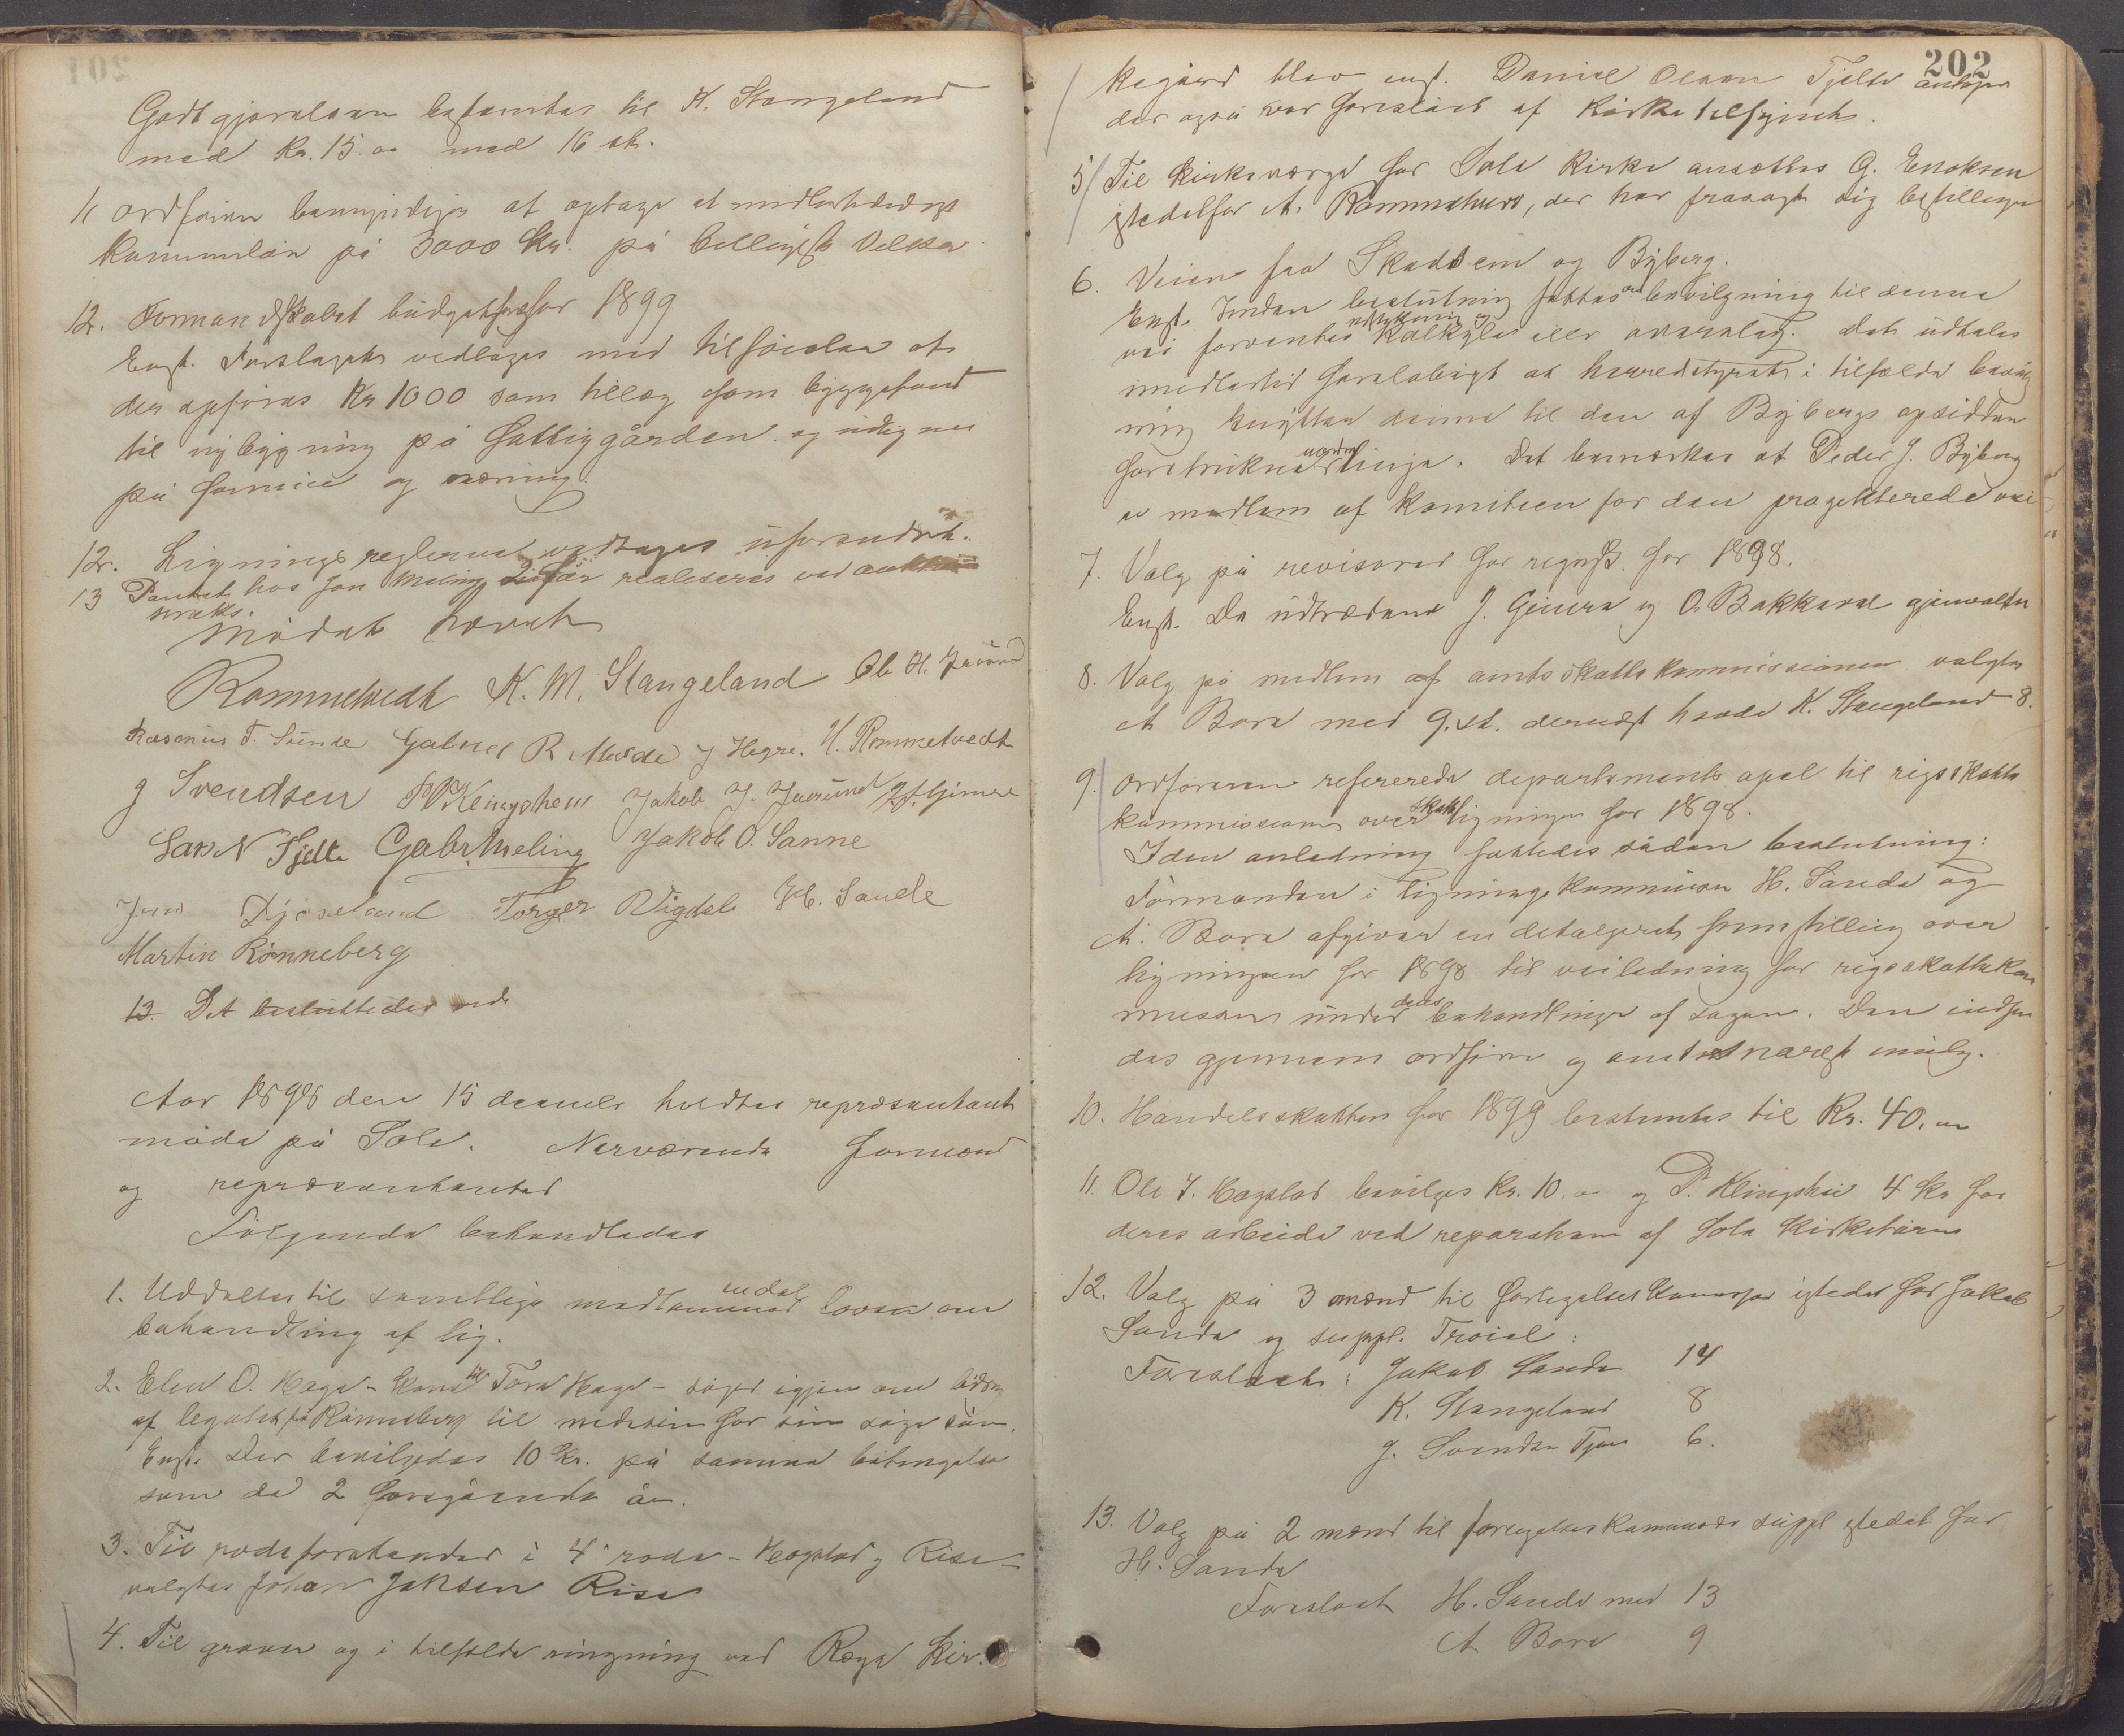 Godtgjørelsen bestemtes til K. Stangeland
med Kr. 15.00 med 16 st.
11 Ordføreren bemyndiges at optage et midlertidigt
kommunelån på 3000 Kr. på billigste Vilkår
12. Formandskabet budgetforslag for 1899
Enst. Forslaget vedtages med tilføielse at
der opføres Kr 1000 som tillæg som byggefond
til nybygning på fattiggården og udlignes
på formue og næring.
12. Ligningsreglerne vedtages uforandret.
13 Pantet hos Jon Meling realiseres ved
straks.
Mødet hævet
Rommetvedt K. M. Stangeland Ole H. Jåsund
Rasmus T. Sunde Gabriel R Melde J Hegre. H. Rommetvedt
G Svendsen P Klingsheim Jakob J. Jaasund J. Gimre
Lars N Tjelta Gabr. Meling Jakob O. Sønne
Jens Kjoseland Torger Vigdel H. Sande
Martin Rønneberg
13. Det besluttedes ved
Aar 1898 den 15 december holdtes repræsentant
møde på Sole. Nærværende formænd
og repræsentanter
Følgende behandledes
1. Uddeltes til samtlige medlemmer loven om
behandling af lig.
2. Elen O. Haga - kone til Tore Haga - søger igjen om bidrag
af legatet på Rønneberg til medisin for sin syge søn.
Enst. Der bevilgedes 10 Kr. på samme betingelse
som de 2 foregående år.
3. Til rodeforstander i 4' rode - Haapstad og Risa -
valgtes Johan Jaksen Risa
4. Til graver og i tilfælde ringning ved Ræge Kir-
202
kegård blev enst. Daniel Olsen Tjelta antagen
der også var foreslået af Kirketilsynet.
5 Til Kirkeværge for Sola Kirke ansættes G. Enoksen
istedetfor A. Rommetvedt, der har frasagt sig bestillingen
6. Veien fra Skadsem og Byberg.
Enst. Inden beslutning fattes om bevilgning til denne
vei forventes udstikning og kalkyle eller overslag. Det udtales
imedlertid foreløbigt at herredstyret i tilfælde bevilg
ning knytter denne til den af Bybergs opsiddere
foretrukne nordre linje. Det bemærkes at Peder J. Byberg
er medlem af Komiteen for den projekterede vei
7. Valg på revisorer for regnsk. for 1898.
Enst. De udtrædende J. Gimre og O. Bakkevold gjenvalgtes
8. Valg på medlem af amtsskattekommissionen valgtes
A Bore med 9. st. dernæst havde K. Stangeland 8.
9. Ordføreren refererede departementets apel til rigsskatte
kommissionen over skatteligningen for 1898.
I den anledning fattedes sådan beslutning:
Formanden i ligningskommissionen H. Sande og
A. Bore afgiver en detaljeret fremstilling over
ligningen for 1898 til veiledning for rigsskattekom
missionen under dens behandlingen af sagen. Den indsen
des gjennem ordføreren og amtet snarest mulig.
10. Handelsskatten for 1899 bestemtes til Kr. 40.00
11. Ole J. Haapstad bevilges Kr. 10.00 og P. Klingsheim 4 Kr for
deres arbeide ved reparation af Sola Kirketårn
12. Valg på 3 mænd til forligelseskommission istedet for Jakob
Sande og suppl. Troiel:
Foreslået: Jakob Sande 14
K. Stangeland 8
G. Svendsen Tjora 6.
13. Valg på 2 mænd til forligelseskommissær suppl istedet for
H. Sande
Foreslået H. Sande med 13
A Bore 9